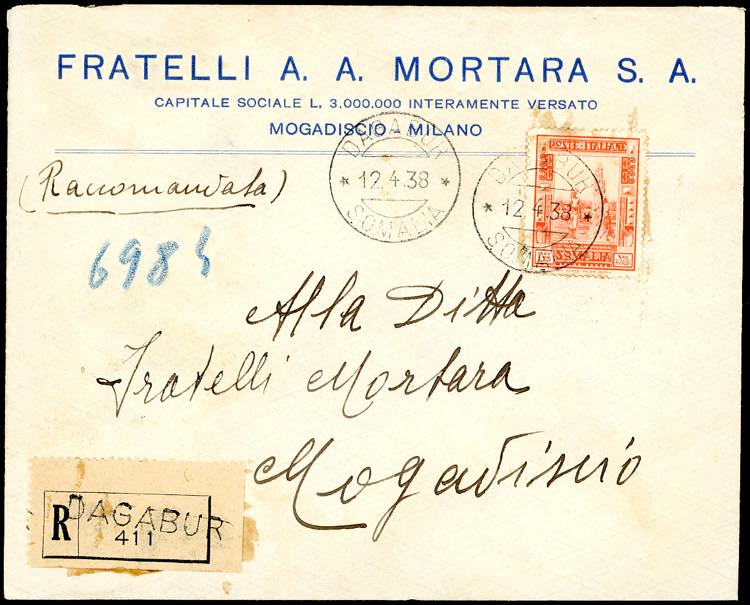 FRATELLI A. A. MORTARA S. A.
CAPITALE SOCIALE L. 3.000.000 INTERAMENTE VERSATO
MOGADISCIO - MILANO
(Raccomandata)
DAGABUR
* 12.4.38 *
SOMALIA
DAGABUR
* 12.4.38 *
SOMALIA
POSTE ITALIANE
SOMALIA
Alla Ditta
Fratelli Mortara
Mogadiscio
R DAGABUR
411